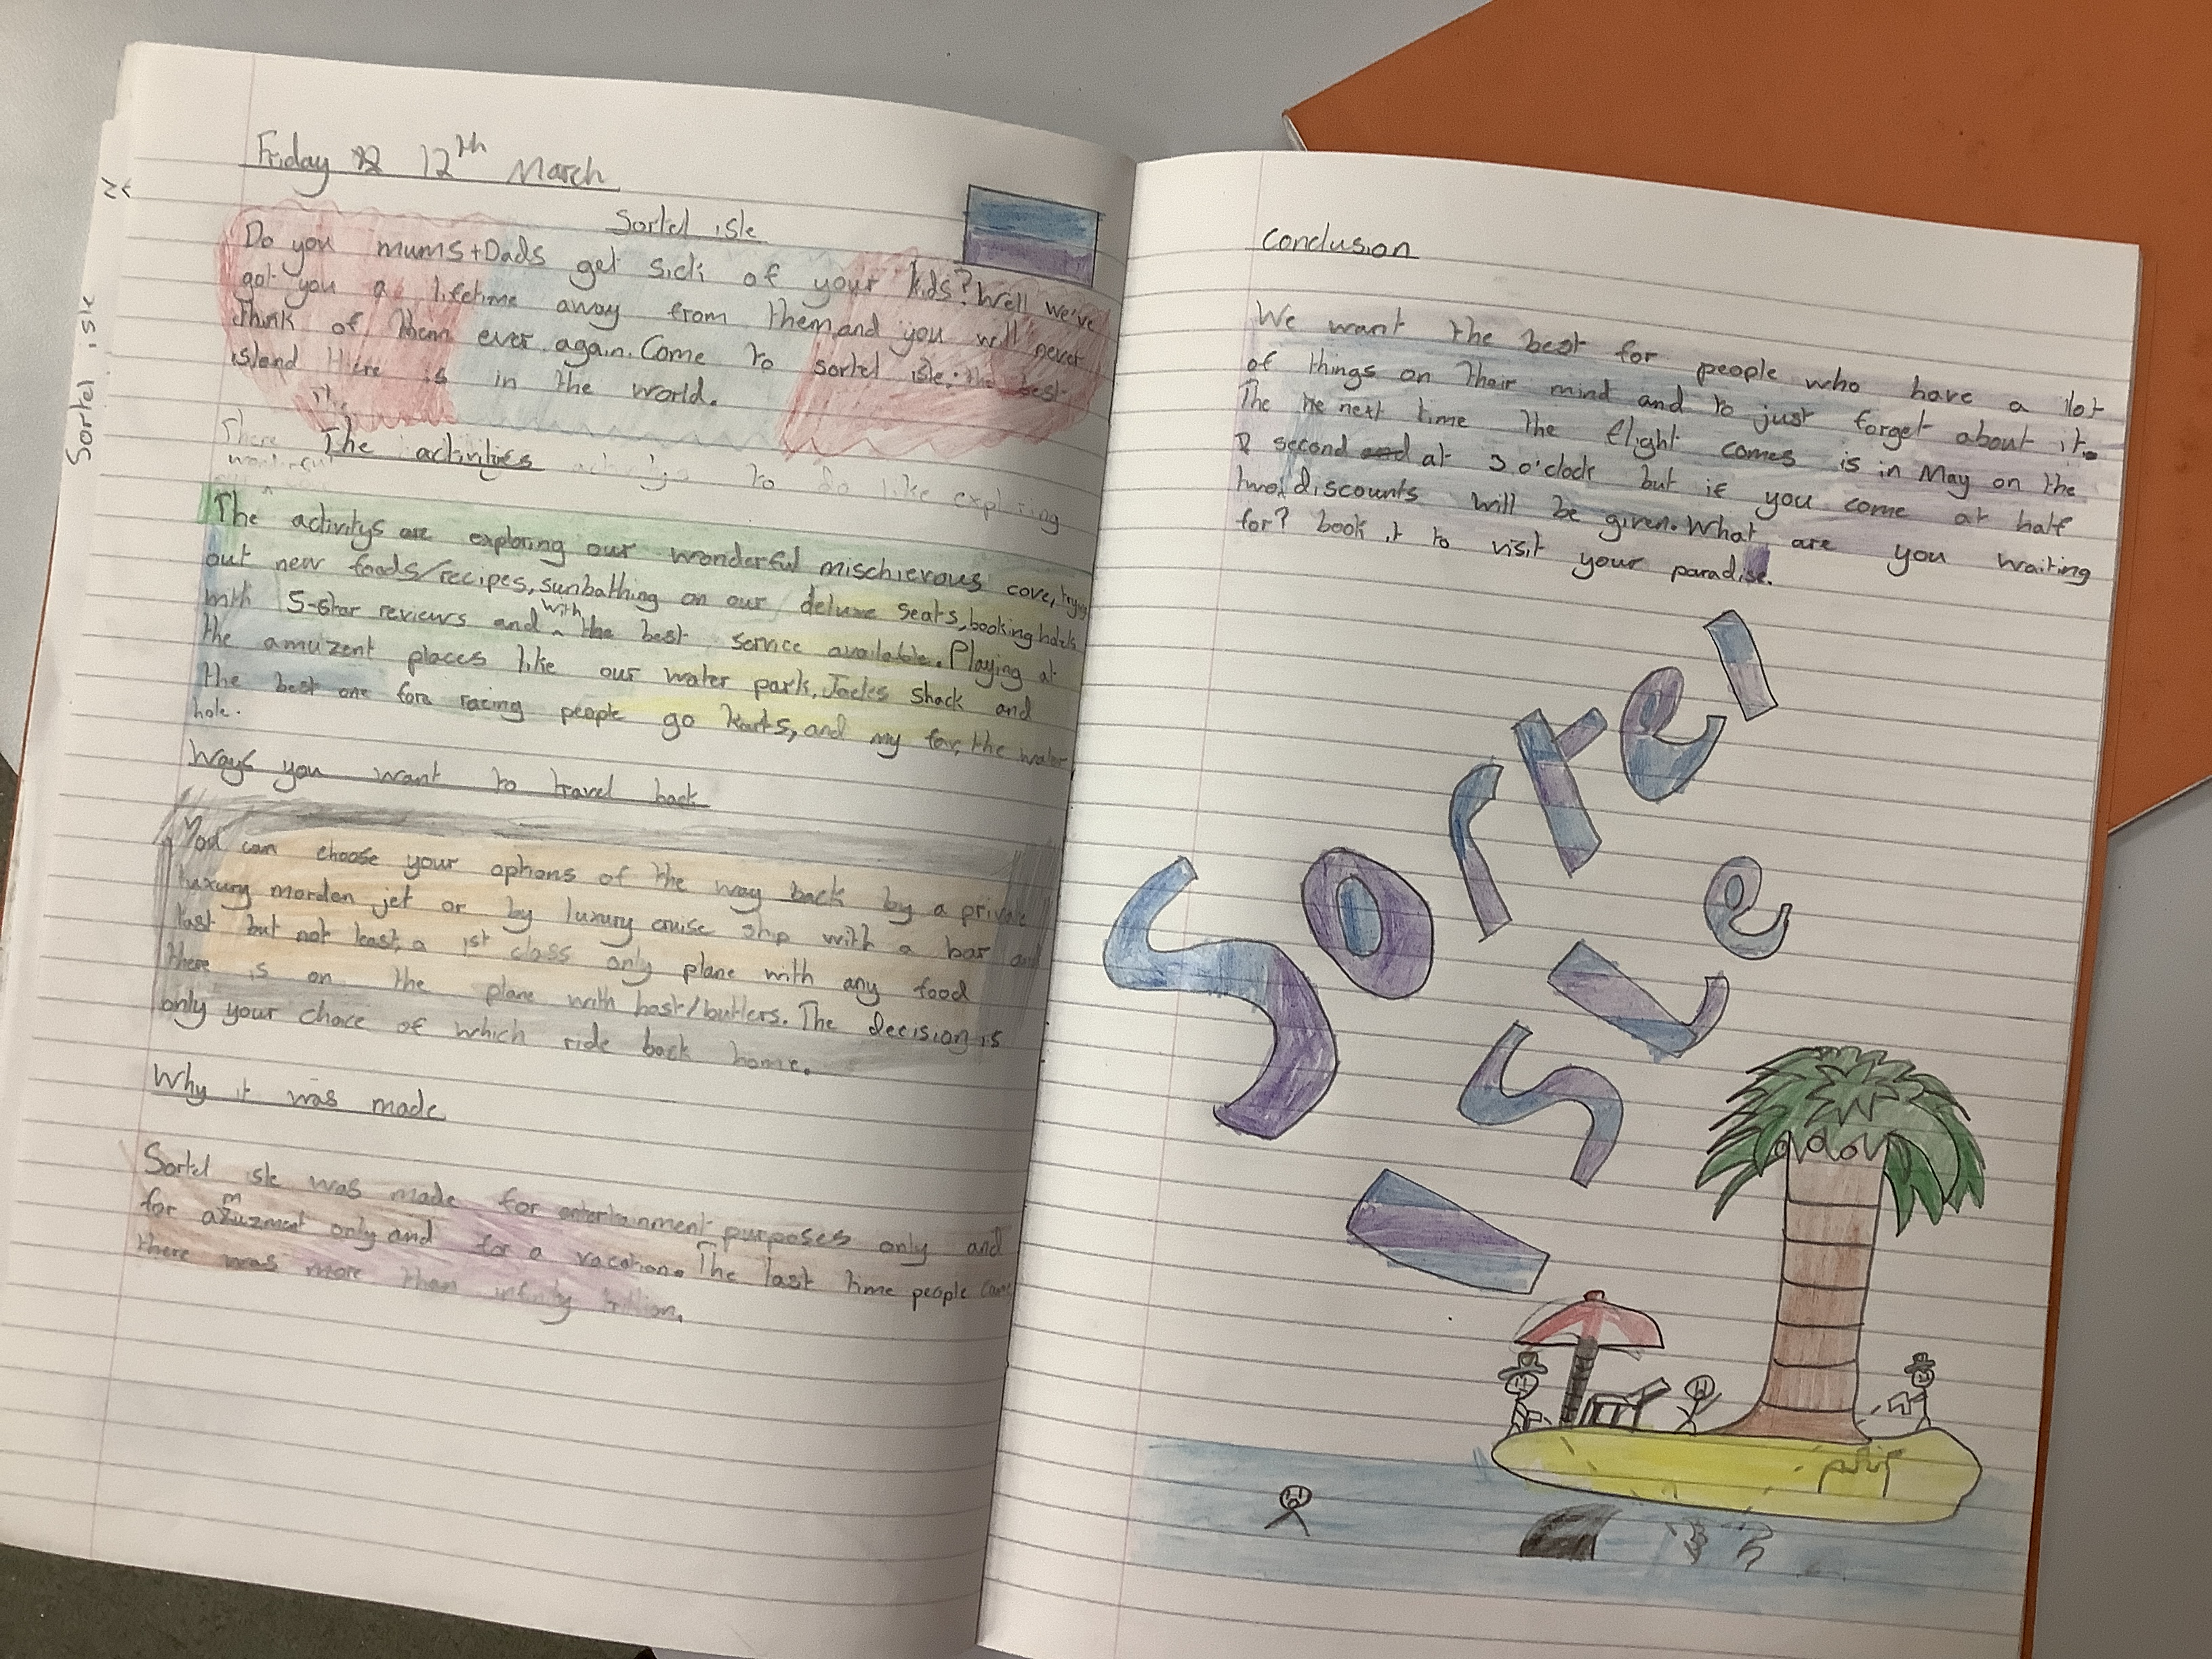 Friday 12th March
Sortel isle
Do you mums+Dads get sick of your kids? Well we've
got you a lifetime away from them and you will never
think of them ever again. Come to sortel isle; the best
island there is in the world.
The
The activities
There activitys to do like exploring
wonderful
The activitys are exploring our wonderful mischievous cove, trying
out new foods/recipes, sunbathing on our deluxe seats, booking hotels
with 5-star reviews and with the best service available. Playing at
the amuzent places like our water park, Jacks shack and
the best one fora racing people go karts, and my fav, the water
hole.
Ways you want to travel back
You can choose your options of the way back by a private
luxury mordon jet or by luxury cruise ship with a bar and
last but not least, a 1st class only plane with any food
there is on the plane with host/butlers. The decision is
only your choice of which ride back home.
Why it was made
Sortel isle was made for entertainment purposes only and
for amuzment only and for a vacation. The last time people came
there was more than infinity trillion.
Sortel isle
Conclusion
We want the best for people who have a lot
of things on their mind and to just forget about it.
The next time the flight comes is in May on the
second and at 3 o'clock but if you come at half
two, discounts will be given. What are you waiting
for? book it to visit your paradise.
Sortel
isle